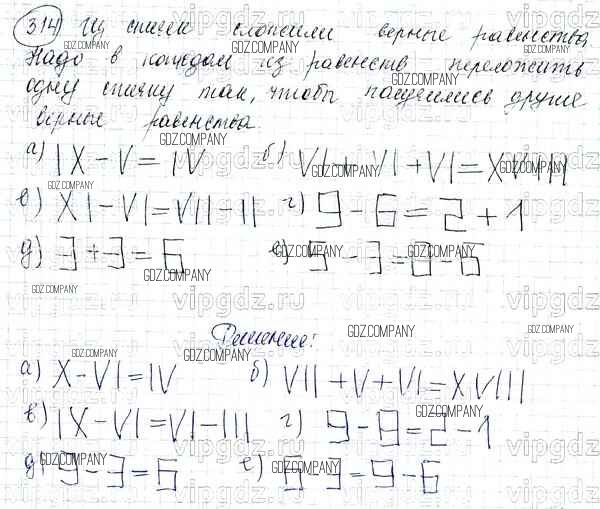 314 Из спичек сложили верные равенства
Надо в каждом из равенств переложить
одну спичку так, чтобы получились другие
верные равенства.
а) IX - V = IV б) VI + VI + VI = XVIII
в) XI - VI = VII - II г) 9 - 6 = 2 + 1
д) 3 + 3 = 6 е) 9 - 3 = 0 - 6
Решение:
а) X - VI = IV б) VII + V + VI = XVIII
в) IX - VI = VI - III г) 9 - 9 = 2 - 1
д) 9 - 3 = 6 е) 6 - 3 = 9 - 6